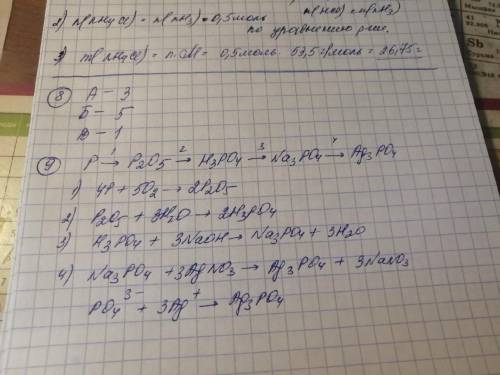 2) n(NH4Cl) = n(NH3) = 0,5 моль
по уравнению
3) m(NH4Cl) = n·M = 0,5 моль · 53,5 г/моль = 26,75 г
8) А – 3
Б – 5
Д – 1
9) P →1 P2O5 →2 H3PO4 →3 Na3PO4 →4 Ag3PO4
1) 4P + 5O2 → 2P2O5
2) P2O5 + 3H2O → 2H3PO4
3) H3PO4 + 3NaOH → Na3PO4 + 3H2O
4) Na3PO4 + 3AgNO3 → Ag3PO4 + 3NaNO3
PO4³⁻ + 3Ag⁺ → Ag3PO4
Sb